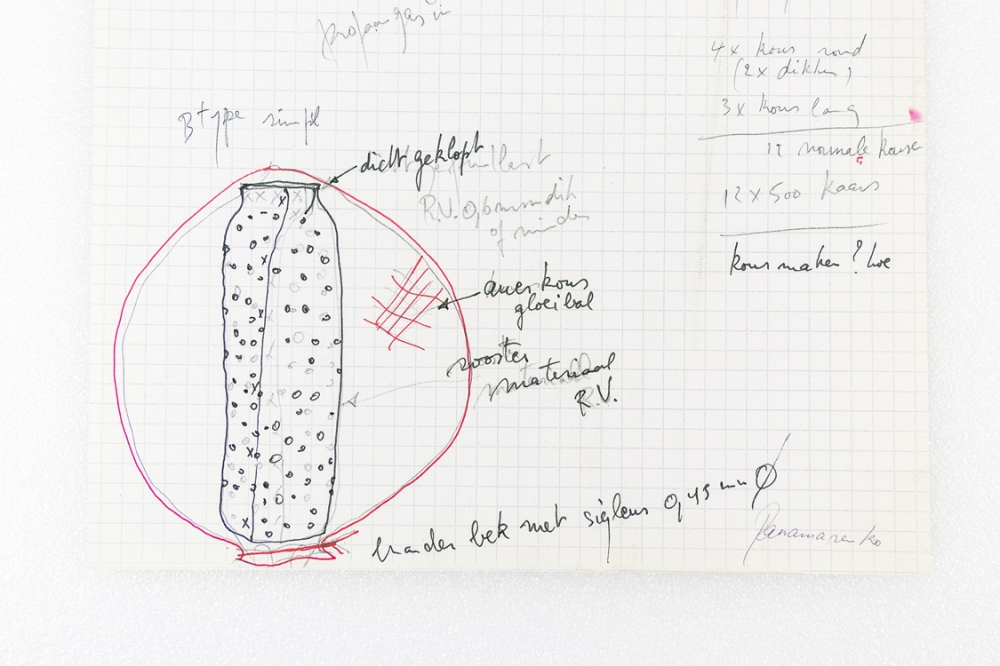 propaangas in
4x kous rond
(2x dikten)
3x kous lang
12 normale kouse
12 x 500 kaars
kous maken? hoe
B type simpl
dicht geklopt
R.V. 0,6 mm dik
of minder
auerkous
gloeibal
rooster
materiaal
R.V.
brander bek met siglens 0,45 mm Ø
Panamarenko